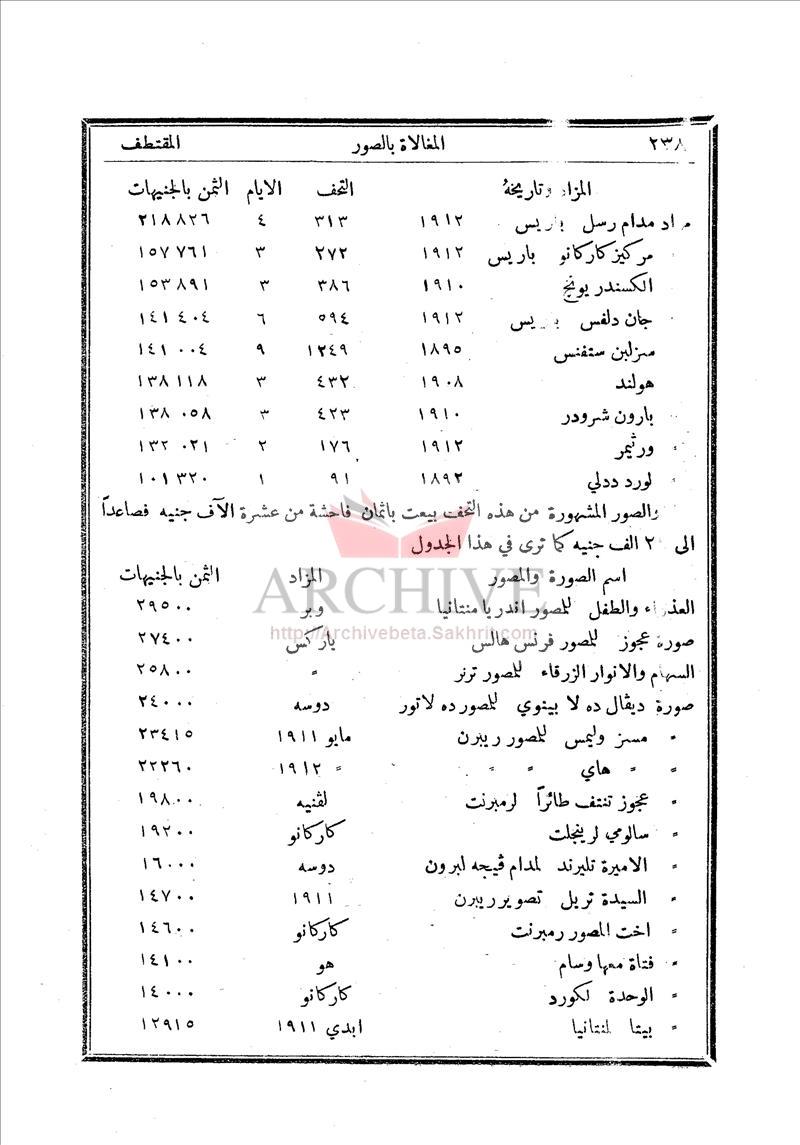 ٢٣٨ المغالاة بالصور المقتطف
المزاد وتاريخهُ التحف الايام الثمن بالجنيهات
مزاد مدام رسل باريس ١٩١٢ ٣١٣ ٤ ٢١٨٨٢٦
" مركيز كاركانو باريس ١٩١٢ ٢٧٢ ٣ ١٥٧٧٦١
الكسندر يونج ١٩١٠ ٣٨٦ ٣ ١٥٣٨٩١
جان دلفس باريس ١٩١٢ ٥٩٤ ٦ ١٤١٤٠٤
مزلبن ستفنس ١٨٩٥ ١٢٤٩ ٩ ١٤١٠٠٤
هولند ١٩٠٨ ٤٣٢ ٣ ١٣٨١١٨
بارون شرودر ١٩١٠ ٤٢٣ ٣ ١٣٨٠٥٨
" ورثيمر ١٩١٢ ١٧٦ ٢ ١٣٢٠٢١
" لورد ددلي ١٨٩٢ ٩١ ١ ١٠١٣٢٠
والصور المشهورة من هذه التحف بيعت باثمان فاحشة من عشرة الآف جنيه فصاعداً
الى ٢٠ الف جنيه كما ترى في هذا الجدول
اسم الصورة والمصور المزاد الثمن بالجنيهات
ARCHIVE
العذراء والطفل للمصور اندريا منتانيا وبر ٢٩٥٠٠
http://Archivebeta.Sakhrit.com
صورة عجوز للمصور فرنس هالس ياركس ٢٧٤٠٠
السهام والانوار الزرقاء للمصور ترنر " ٢٥٨٠٠
صورة ديڤال ده لا بينوي للمصور ده لاتور دوسه ٢٤٠٠٠
" مسز وليمس للمصور ريبرن مايو ١٩١١ ٢٣٤١٥
" " هاي " " " ١٩١٢ ٢٢٢٦٠
" عجوز تنتف طائراً لرمبرنت لڤنيه ١٩٨٠٠
" سالومي لرينجلت كاركانو ١٩٢٠٠
" الاميرة تليرند لمدام ڤيجه لبرون دوسه ١٦٠٠٠
" السيدة تريل تصوير ريبرن ١٩١١ ١٤٧٠٠
" اخت المصور رمبرنت كاركانو ١٤٦٠٠
" فتاة معها وسام هو ١٤١٠٠
" الوحدة لكورد كاركانو ١٤٠٠٠
" بيتا لمنتانيا ابدي ١٩١١ ١٢٩١٥